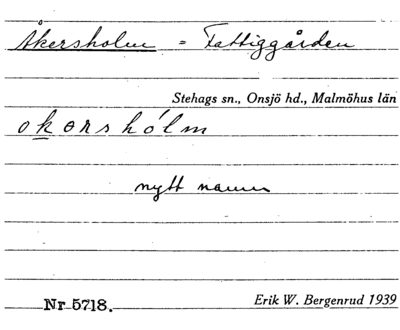 Åkersholm = Fattiggården
Stehags sn., Onsjö hd., Malmöhus län
okərshólm
nytt namn
Nr 5718.
Erik W. Bergenrud 1939